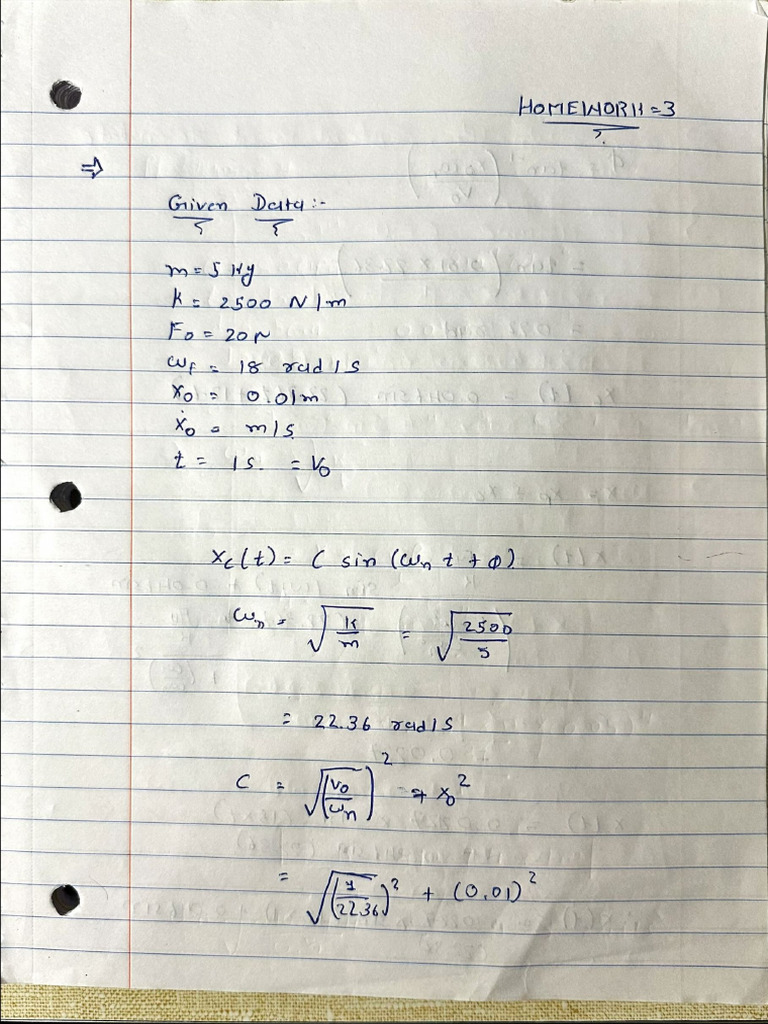 HOMEWORK=3
⇒
Given Data :-
m = 5 Kg
K = 2500 N/m
F0 = 20N
ωf = 18 rad/s
x0 = 0.01m
ẋ0 = m/s.
t = 1s. = V0
xc(t) = C sin (ωn t + φ)
ωn = √(K/m) = √(2500/5)
= 22.36 rad/s
C = √(V0/ωn)² + x0²
= √(1/22.36)² + (0.01)²